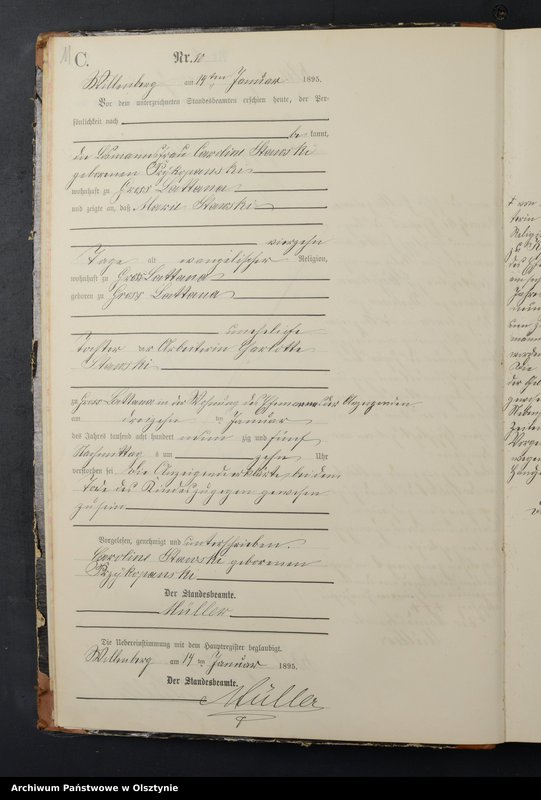 C.
Nr. 10
Willenberg am 14ten Januar 1895.
Vor dem unterzeichneten Standesbeamten erschien heute, der Per-
sönlichkeit nach
be kannt,
die Losmannsfrau Caroline Stawski
geborenen
wohnhaft zu Gross Lattana
und zeigte an, daß Marie Stawski
vierzehn
Tage alt evangelischer Religion,
wohnhaft zu Gross Lattana
geboren zu Gross Lattana
uneheliche
Tochter der Arbeiterin Charlotte
Stawski
zu Gross Lattana in der Wohnung des Ehemannes der Anzeigenden
am dreizehn ten Januar
des Jahres tausend acht hundert neun zig und fünf
Nachmittags um zehn Uhr
verstorben sei. Die Anzeigende erklärte bei dem
Tode des Kindes zugegen gewesen
zu sein
Vorgelesen, genehmigt und unterschrieben.
Caroline Stawski geborenen
Der Standesbeamte.
Müller
Die Uebereinstimmung mit dem Hauptregister beglaubigt.
Willenberg am 14 ten Januar 1895.
Der Standesbeamte.
Müller
Archiwum Państwowe w Olsztynie